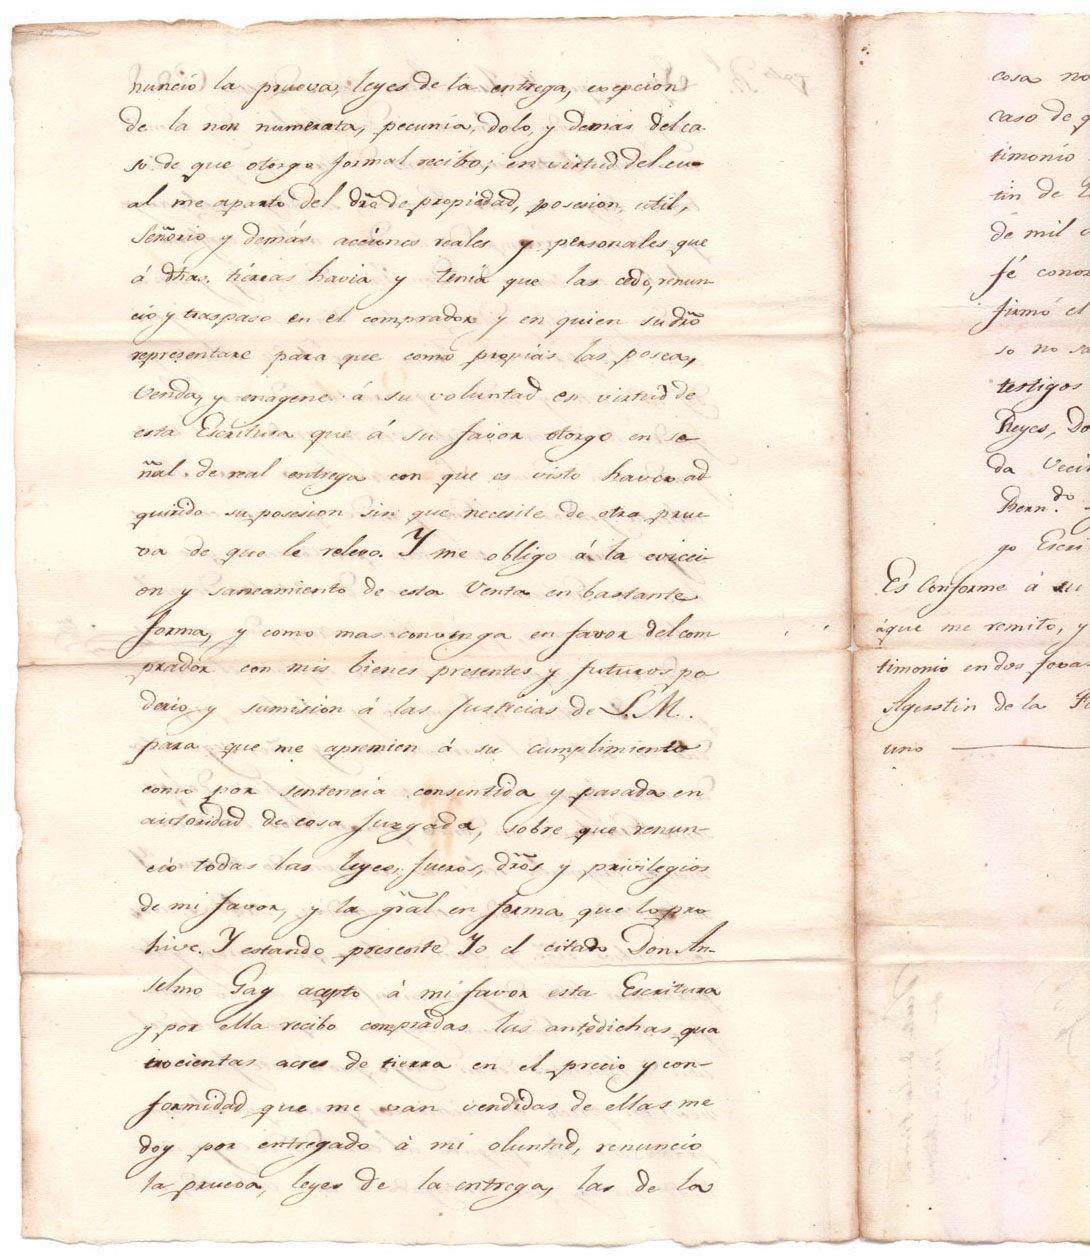 nunció la prueva, leyes de la entrega, excepcion
de la non numerata, pecunia, dolo, y demas del ca-
so de que otorgo formal recibo; en virtud del cu-
al me aparto del dro de propiedad, posesion, util,
Señorio y demás acciones reales y personales que
á dhas. tierras havia y tenia que las cedo, renun-
cio y traspaso en el comprador y en quien su dro
representare para que como propias las posea,
Venda, y enagene á su voluntad en virtud de
esta Escritura que á su favor otorgo en se
ñal de real entrega con que es visto haver ad
quirido su posesion sin que necesite de otra prue-
va de que le relevo. Y me obligo á la evicci-
on y saneamiento de esta Venta en bastante
forma, y como mas convenga en favor del com
prador con mis bienes presentes y futuros po
derio y sumision á las Justicias de S.M.
para que me apremien á su cumplimiento
como por sentencia consentida y pasada en
autoridad de cosa Juzgada, sobre que renun-
cio todas las leyes, fueros, dros y privilegios
de mi favor, y la gral en forma que lo pro
hive. Y estando presente Yo el citado Don An-
selmo Gay acepto á mi favor esta Escritura
y por ella recibo compradas las antedichas qua
trocientas acres de tierra en el precio y con-
formidad que me van vendidas de ellas me
doy por entregado à mi oluntad, renuncio
la prueva, leyes de la entrega, las de la
cosa no
caso de q
timonio
tin de
de mil
fé cono
firmó el
so no sa
testigos
Reyes, Do
da Veci
Bern.do
go Escri
Es Conforme á su
áque me remito, y
timonio en dos foxas
Agustin de la
uno